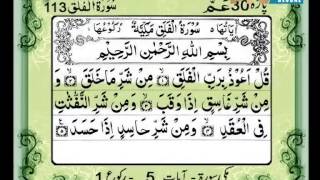 پارہ 30 عم
سورة الفلق 113
سُورَةُ الْفَلَقِ مَكِّيَّةٌ
بِسْمِ اللهِ الرَّحْمٰنِ الرَّحِيْمِ
قُلْ اَعُوْذُ بِرَبِّ الْفَلَقِ ۙ مِنْ شَرِّ مَا خَلَقَ ۙ وَ
مِنْ شَرِّ غَاسِقٍ اِذَا وَقَبَ ۙ وَمِنْ شَرِّ النَّفّٰثٰتِ
فِى الْعُقَدِ ۙ وَمِنْ شَرِّ حَاسِدٍ اِذَا حَسَدَ
مکی سورة - آیات 5 - رکوع 1